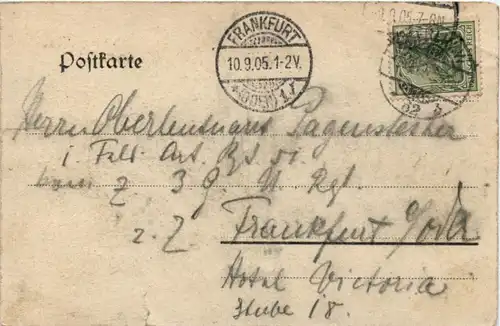 Postkarte
FRANKFURT
10.9.05.1-2V.
(ODER)
9.05.7-8N
Herrn Oberleutnant Pagenstecher
i. Feld Art. Rgt. 51.
z. Z.
Frankfurt a/Oder
Hotel Victoria
Stube 18.